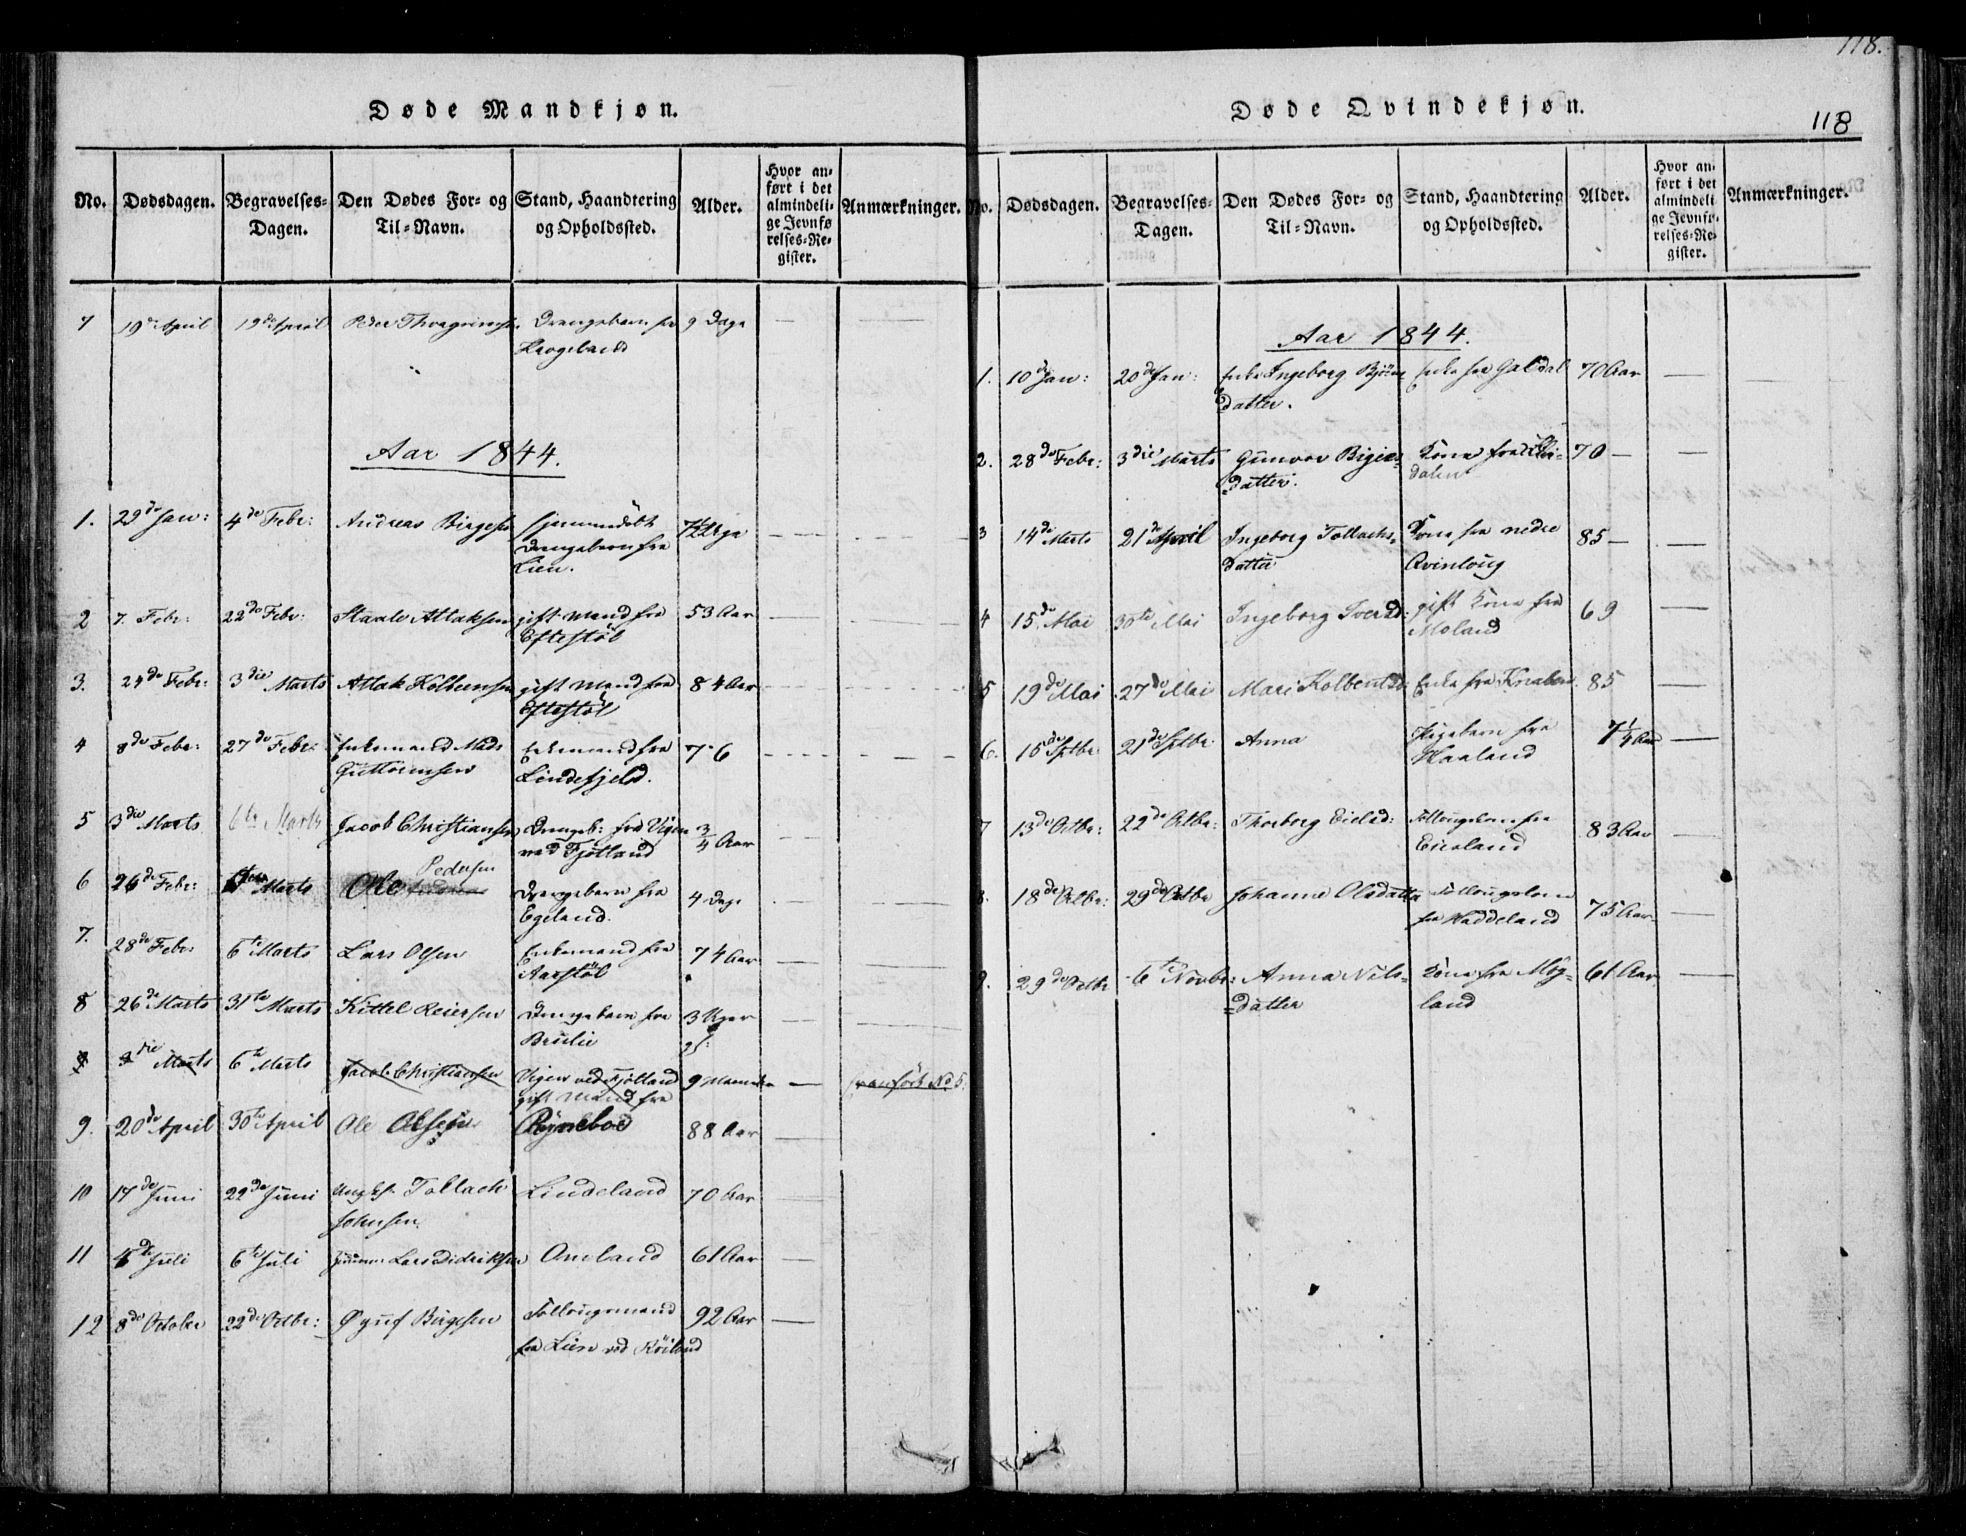 118.
Døde Mandkjøn.
No. Dødsdagen. Begravelses-Dagen. Den Dødes For- og Til-Navn. Stand, Haandtering og Opholdssted. Alder. Hvor anført i det almindelige Jevnførelses-Register. Anmærkninger.
7 19de April 19de April Peder Drengebarn fra 9 Dage —
Haugeland
Aar 1844.
1. 29de Jan: 4de Febr: Andreas Birgesen hjemmedøbt
Drengebarn fra
Lien.
2 7. Febr: 22de Febr: Staale Atlaksen gift Mand fra 53 Aar
Eftestøl
3. 24de Febr: 3die Marts Atlak gift Mand fra 84 Aar
Eftestøl
4 8de Febr: 27de Febr: Enkemand Mads Enkemand fra 76
Guttormsen Lindefjeld.
5 3die Marts 6te Marts Jacob Christiansen Drengeb: fra Vigen 3/4 Aar
ved Fjotland
6 26de Febr: Marts Ole Pedersen Drengebarn fra 4 Dage
Egeland.
7. 28de Febr: 6te Marts Lars Olsen Enkemand fra 74 Aar
Aarstøl
8 26de Marts 31te Marts Kittel Reiersen Drengebarn fra 3 Uger
Brulie
3die Marts 6te Marts Jacob Christiansen Vigen ved Fjotland 9 Maaneder — No 5.
gift Mand fra
9. 20de April 30te April Ole Olsen 88 Aar —
10 17de Juni 22de Juni Ungk. Tollack Lindeland 70 Aar —
Johnsen.
11 4de Juli 6te Juli Lars Didriksen Omland 61 Aar —
12 8de October 22de Octbr: Øyuf Birgesen Føllougsmand 92 Aar —
fra Lien ved
Døde Qvindekjøn.
118
No. Dødsdagen. Begravelses-Dagen. Den Dødes For- og Til-Navn. Stand, Haandtering og Opholdssted. Alder. Hvor anført i det almindelige Jevnførelses-Register. Anmærkninger.
Aar 1844.
1. 10de Jan: 20de Jan: Enke Ingeborg Bjørns Enke fra Galdal 70 Aar —
Datter.
2. 28de Febr: 3die Marts Gunvor Kone fra 70 — —
Datter.
3 14de Marts 21de April Ingeborg Tollachs- Kone fra nedre 85 — —
Datter Qvinloug
4 15de Mai 30te Mai Ingeborg Iversd: gift Kone fra 69 —
Moland
5 19de Mai 27de Mai Mari Enke fra Knaben. 85 —
6. 15de Sptbr. 21de Sptbr. Anna Pigebarn fra 7 1/4 Aar —
Haaland
7 13de Octbr: 22de Octbr: Thorborg Eielsd: Føllougskone fra 83 Aar —
Eieland
8. 18de Octbr: 29de Octbr Johanne Olsdatter Føllougskone
fra Haddeland 75 Aar. —
9. 29de Octbr 6te Novbr: Anna Nils- Kone fra Møg- 61 Aar. —
datter land